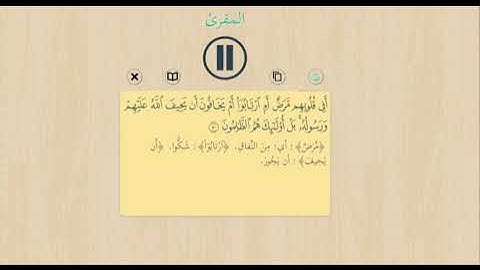 المقرئ
أَفِي قُلُوبِهِم مَّرَضٌ أَمِ ٱرْتَابُوٓا۟ أَمْ يَخَافُونَ أَن يَحِيفَ ٱللَّهُ عَلَيْهِمْ
وَرَسُولُهُۥ ۚ بَلْ أُو۟لَـٰٓئِكَ هُمُ ٱلظَّـٰلِمُونَ
﴿مَّرَضٌ﴾: أي: مِنَ النِّفاقِ. ﴿ٱرْتَابُوٓا۟﴾: شَكُّوا. ﴿أَن
يَحِيفَ﴾: أن يَجُورَ.